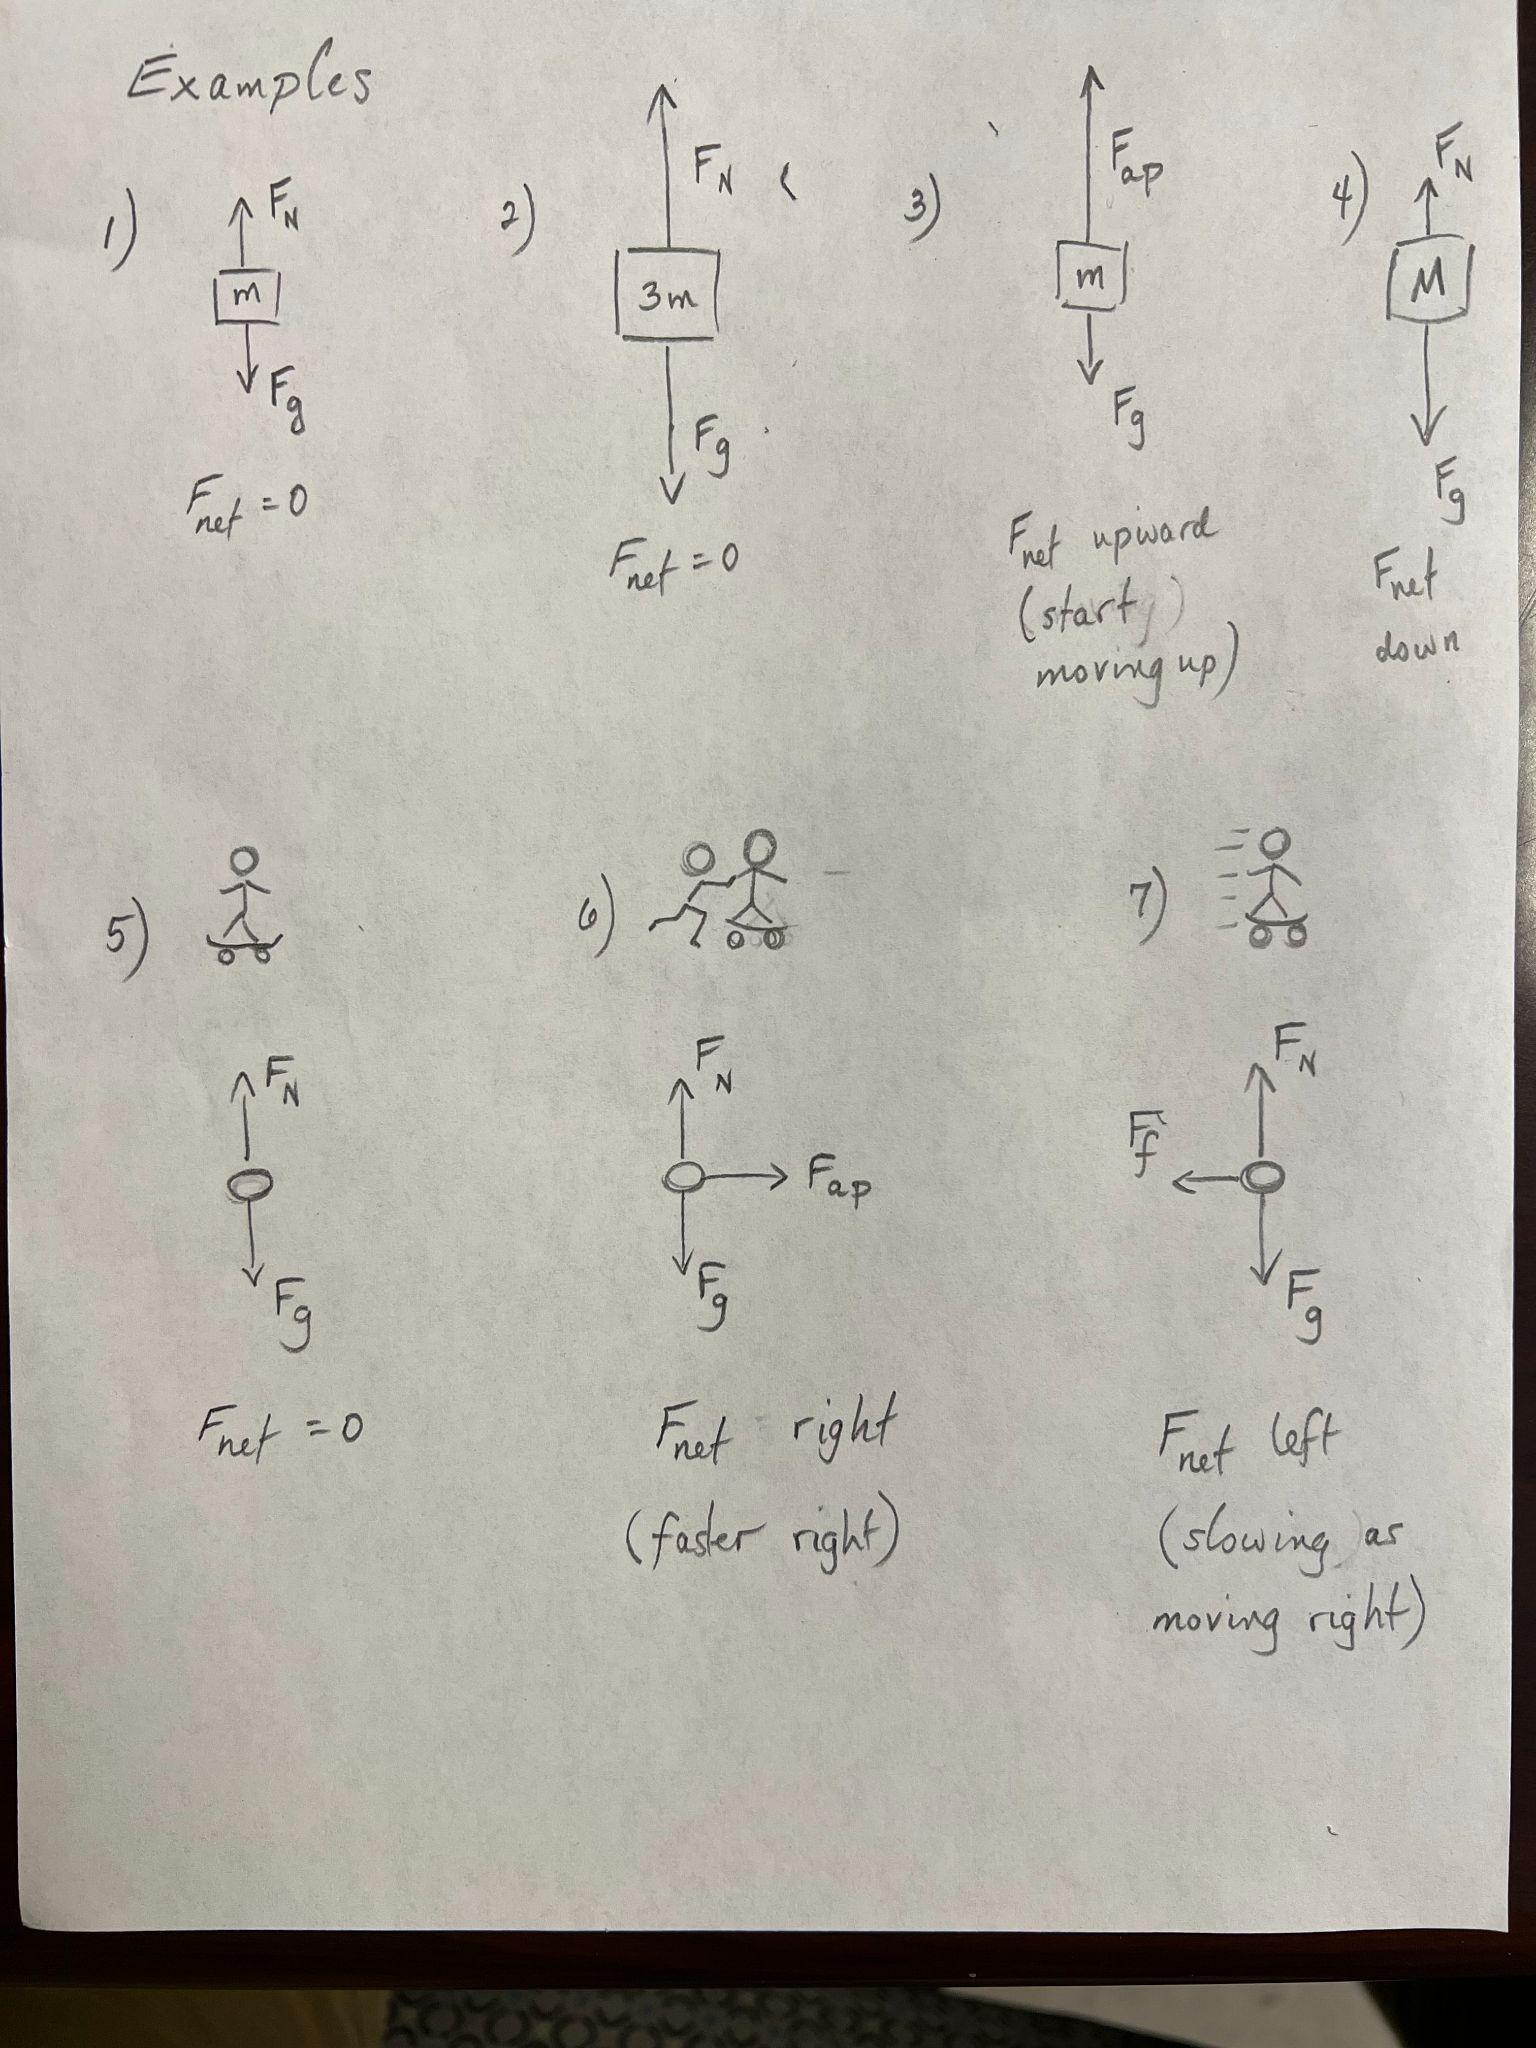 Examples
1)
F_N
m
F_g
F_net = 0
2)
F_N
3m
F_g
F_net = 0
3)
F_ap
m
F_g
F_net upward
(start)
moving up)
4)
F_N
M
F_g
F_net
down
5)
F_N
F_g
F_net = 0
6)
F_N
F_ap
F_g
F_net right
(faster right)
7)
F_N
F_f
F_g
F_net left
(slowing as
moving right)